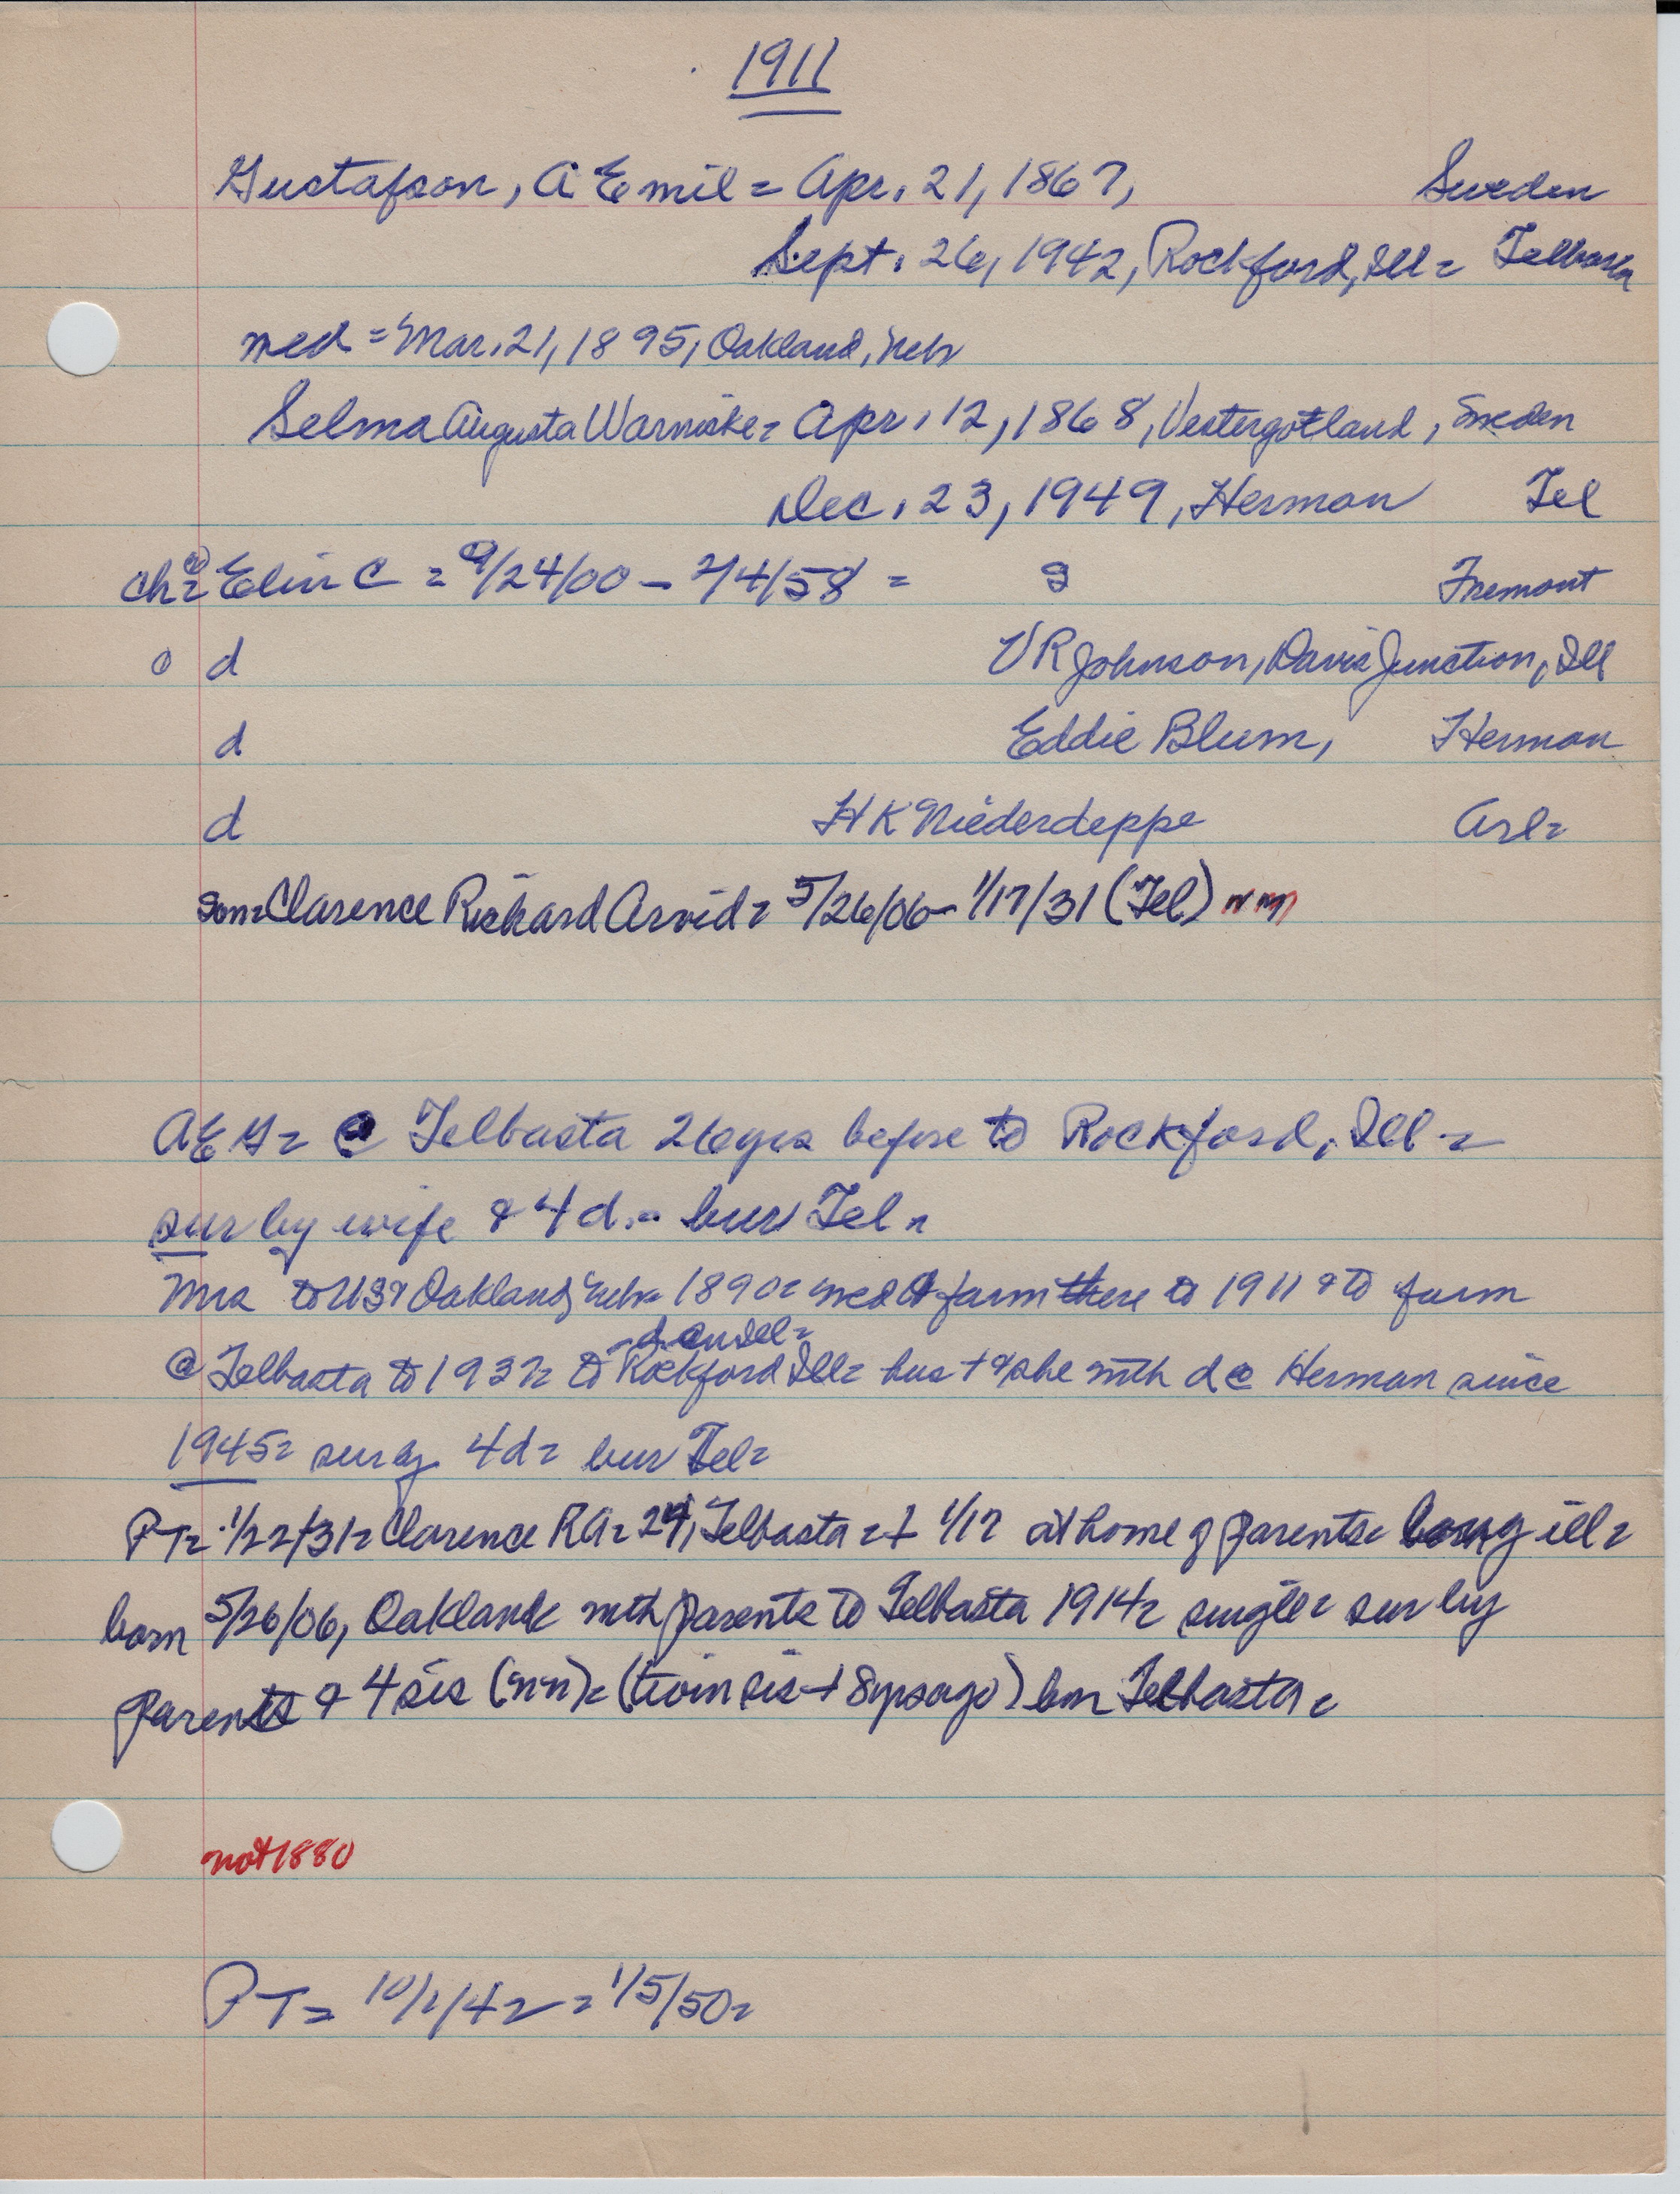 1911
Gustafson, A Emil = Apr. 21, 1867, Sweden
Sept. 26, 1942, Rockford, Ill = Telbasta
med = Mar. 21, 1895, Oakland, Neb
Selma Augusta Warniske = Apr. 12, 1868, Vestergotland, Sweden
Dec. 23, 1949, Herman Tel
ch = Elin C = 9/24/00 - 2/4/58 = Fremont
d V R Johnson, Davis Junction, Ill
d Eddie Blum, Herman
d H K Niederdeppe Arl =
son = Clarence Richard Arvid = 5/26/06 - 1/17/31 (Tel)
A E G = @ Telbasta 26 yrs before to Rockford, Ill =
sur by wife & 4 d. = bur Tel =
Mrs to US & Oakland, Neb = 1890 = med & farm there to 1911 & to farm
d. in Ill =
@ Telbasta to 1932 = to Rockford Ill = hus + & she mth d @ Herman since
1945 = sur by 4 d = bur Tel =
PT = 1/22/31 = Clarence R A = 24, Telbasta = + 1/17 at home of parents = long ill =
born 5/26/06, Oakland & mth parents to Telbasta 1914 = single = sur by
parents & 4 sis (nn) = (twin sis + 8 yrs ago) bur Telbasta =
not 1880
PT = 10/1/42 = 1/5/50 =